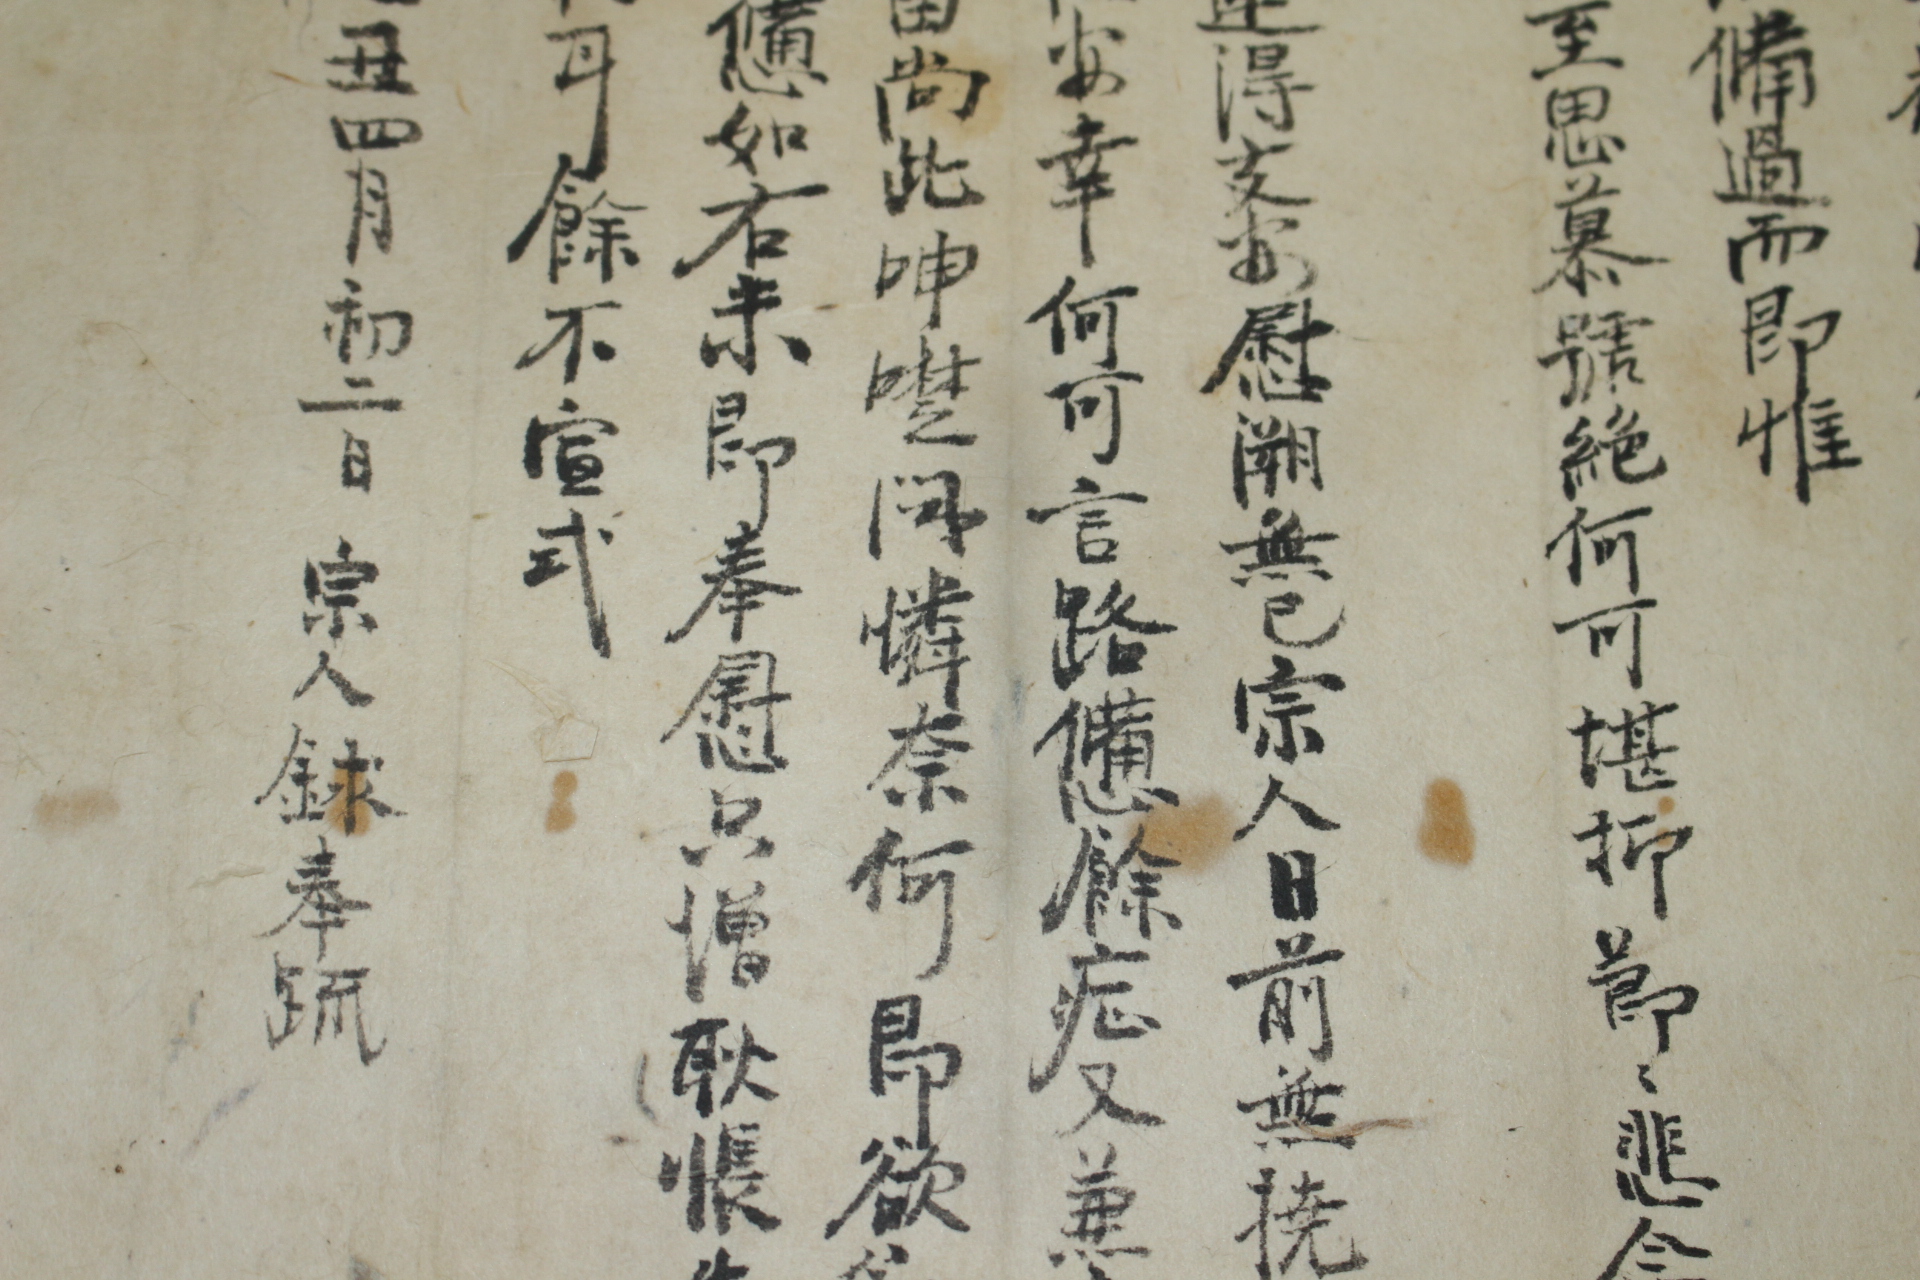 備過而即惟
至思慕號絶何可堪抑節〻悲念
得支安慰溯無已宗人日前無撓
安幸何可言路憊餘症又兼
留尚此呻囈悶憐奈何即欲
憊如右未即奉慰只增耿悵
耳餘不宣式
丑四月初二日 宗人銶奉疏